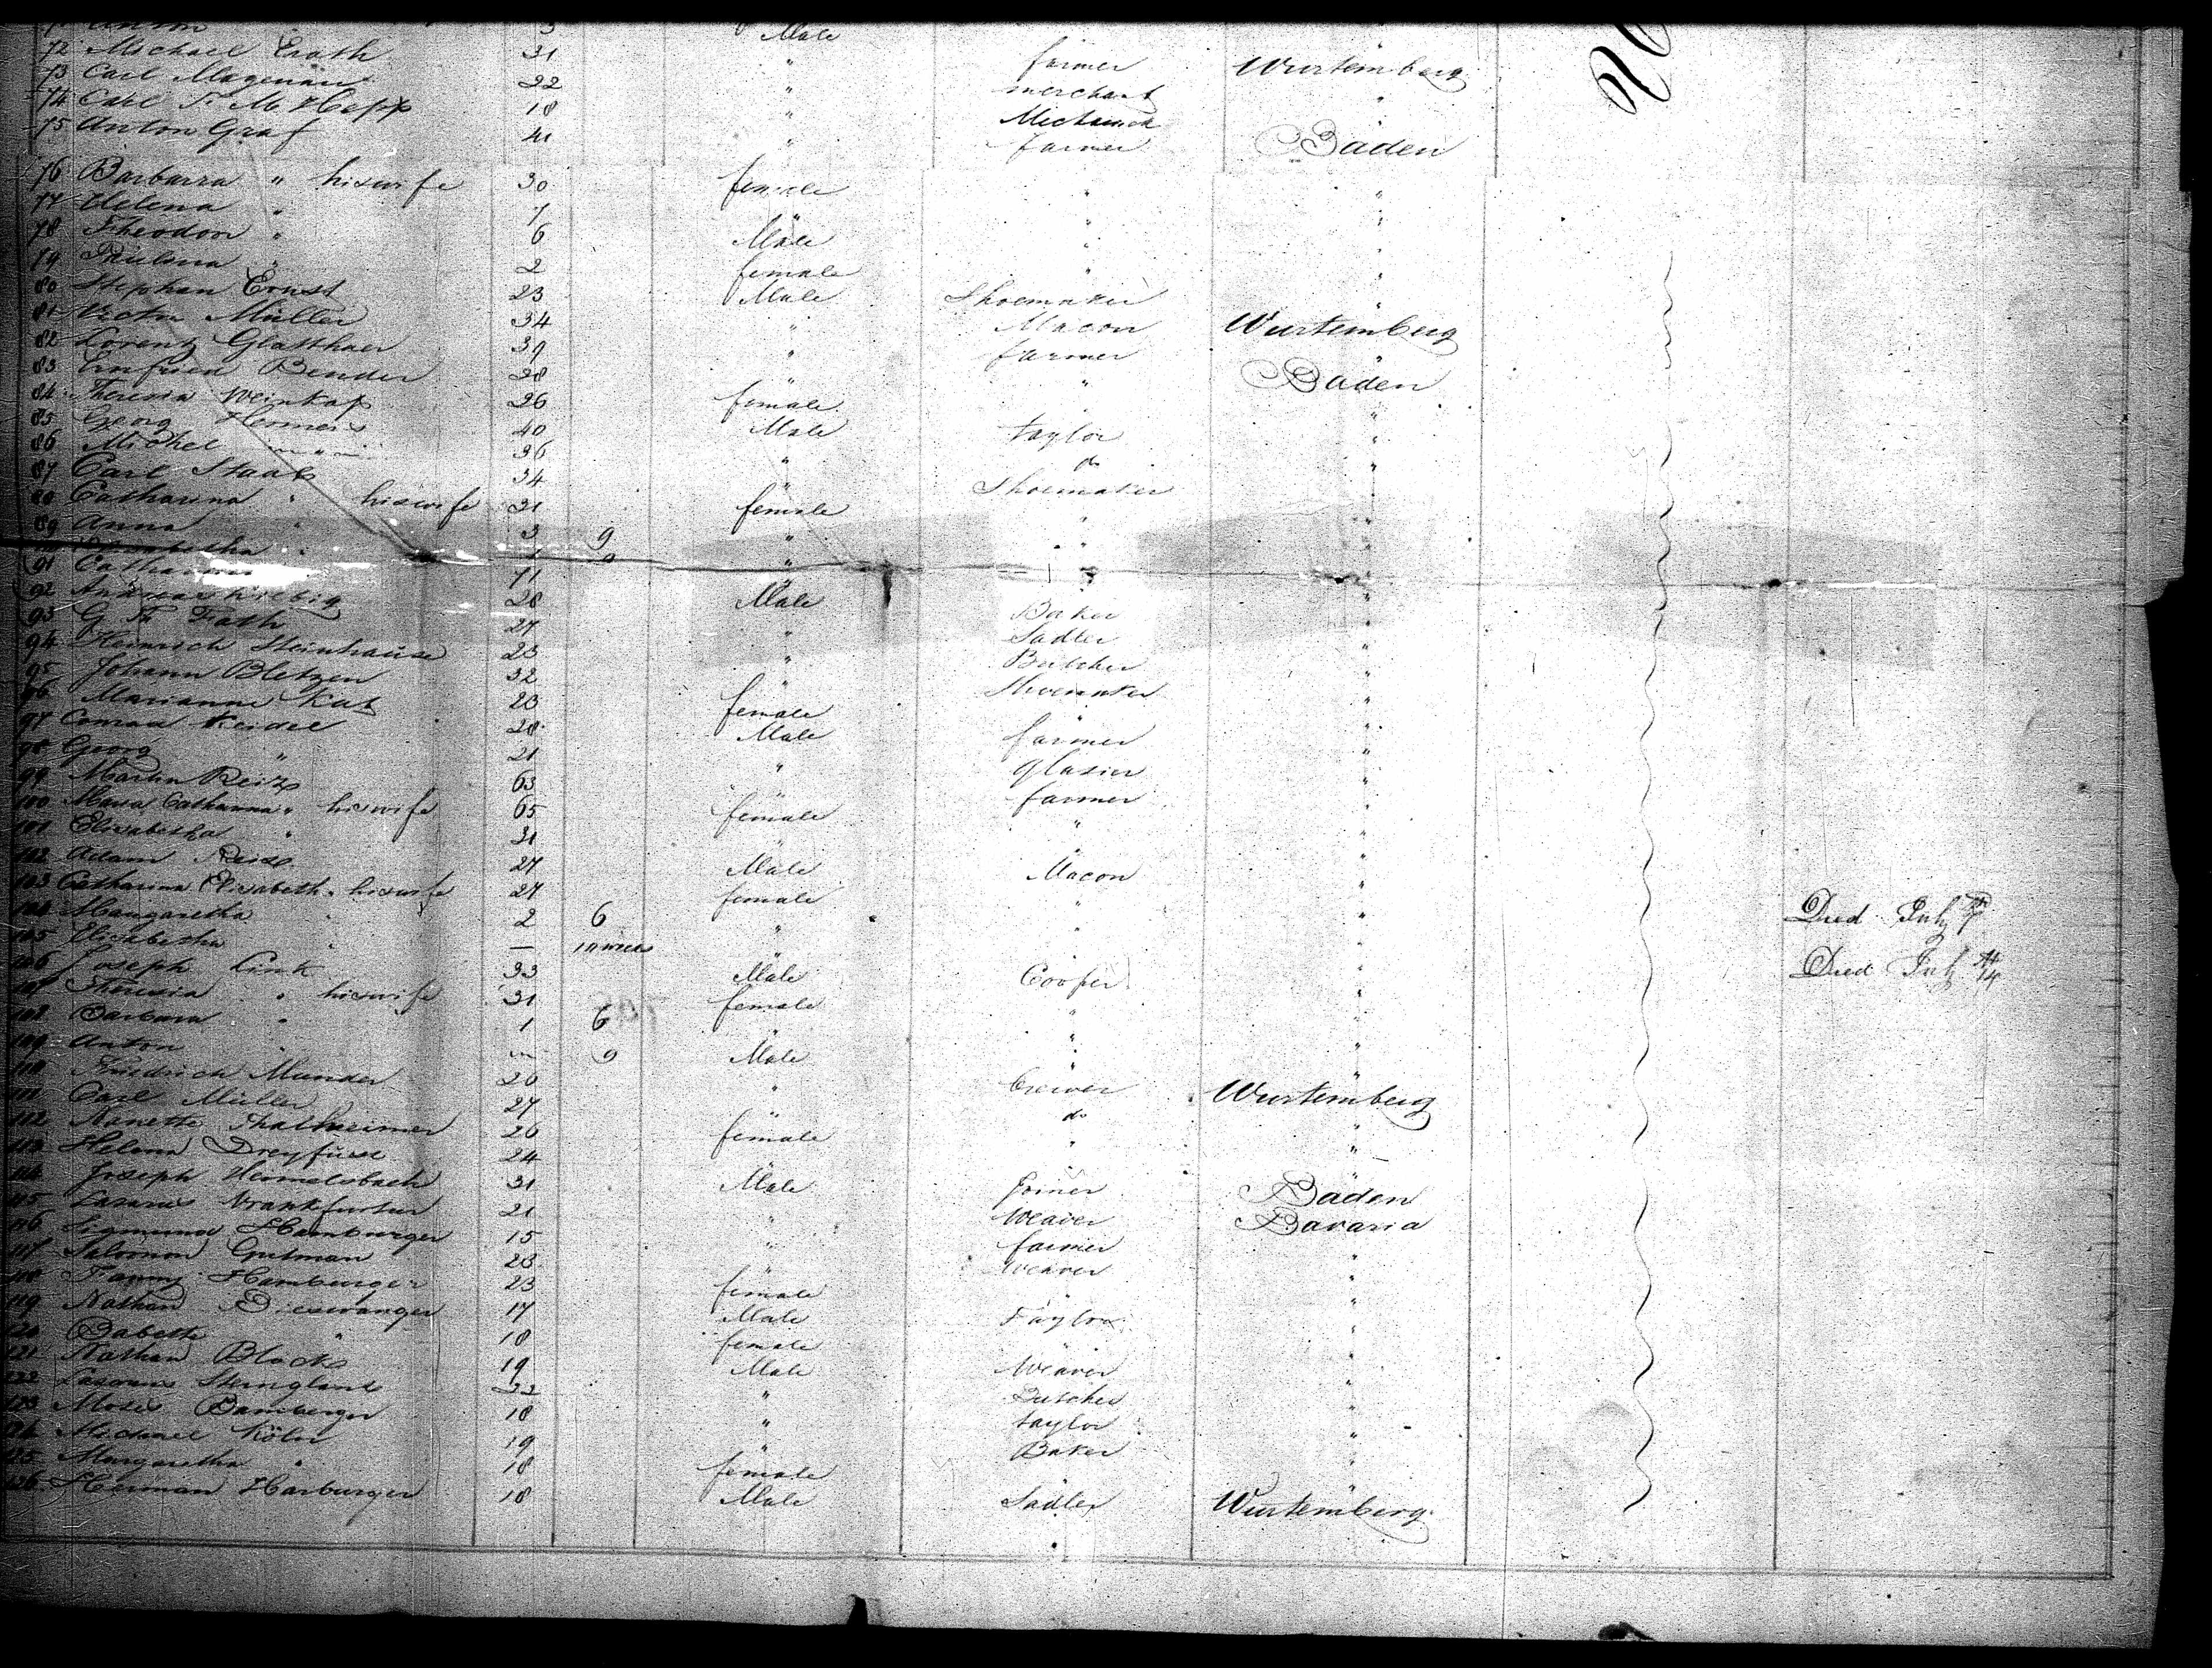 Anton 3 Male
72 Michael Erath 31 " farmer Wurtemberg
73 Carl Magenau 22 " merchant "
74 Carl F. M. 18 " Mechanick "
75 Anton Graf 41 " farmer Baden
76 Barbarra " his wife 30 female " "
77 Helena " 7 " " "
78 Theodor " 6 Male " "
79 Paulina " 2 female " "
80 Stephan Ernst 23 Male Shoemaker "
81 Victor Müller 34 " Macon Wurtemberg
82 Lorentz Glatthaer 39 " farmer "
83 Bender 28 " " Baden
84 Theresia Weinkap 26 female "
85 Georg Hermes 40 Male taylor "
86 Michel " 36 " do "
87 Carl Staab 34 " Shoemaker "
88 Catharina " his wife 31 female " "
89 Anna " 3 9 " " "
Elisabetha " 9 " "
91 Catharina 71 " "
92 Andreas Kilbig 28 Male Baker "
93 G Fr Fath 27 " Sadler "
94 Heinrich Steinhauser 23 " Butcher "
95 Johann Bletzer 32 " Shoemaker "
96 Marianne Kat 23 female "
97 Conrad Keidel 28 Male farmer "
98 Georg " 21 " glasier "
99 Martin Reitz 63 " farmer "
100 Maria Catharina " his wife 65 female " "
101 Elisabetha " 31 " " "
102 Adam Reitz 27 Male Macon "
103 Catharina Elisabeth " his wife 27 female " "
104 Margaretha " 2 6 " " " Died July 7th
105 Elisabetha " — " " " Died July 14th
106 Joseph Link 33 Male Cooper "
107 Theresia " his wife 31 female " "
108 Barbara " 1 6 " " "
109 Anton " — 9 Male " "
110 Friedrich Munder 20 " brewer Wurtemberg
111 Carl Müller 27 " do "
112 Nanette Thalheimer 20 female " "
113 Helena Dreyfuss 24 " " "
114 Joseph Himmelsbach 31 Male Joiner Baden
115 Lazarus Frankfurter 21 " Weaver Bavaria
116 Sigmund Hamburger 15 " farmer "
117 Salomon Gutman 23 " Weaver "
118 Fanny Hamburger 23 female " "
119 Nathan 17 Male Taylor "
120 Babette " 18 female "
121 Nathan Block 19 Male Weaver "
122 Lazarus Sternglanz 22 " Butcher "
123 Moses Bamberger 18 " taylor "
124 Michael Köln 19 " Baker "
125 Margaretha " 18 female "
126 Herman Harburger 18 Male Sadler Wurtemberg